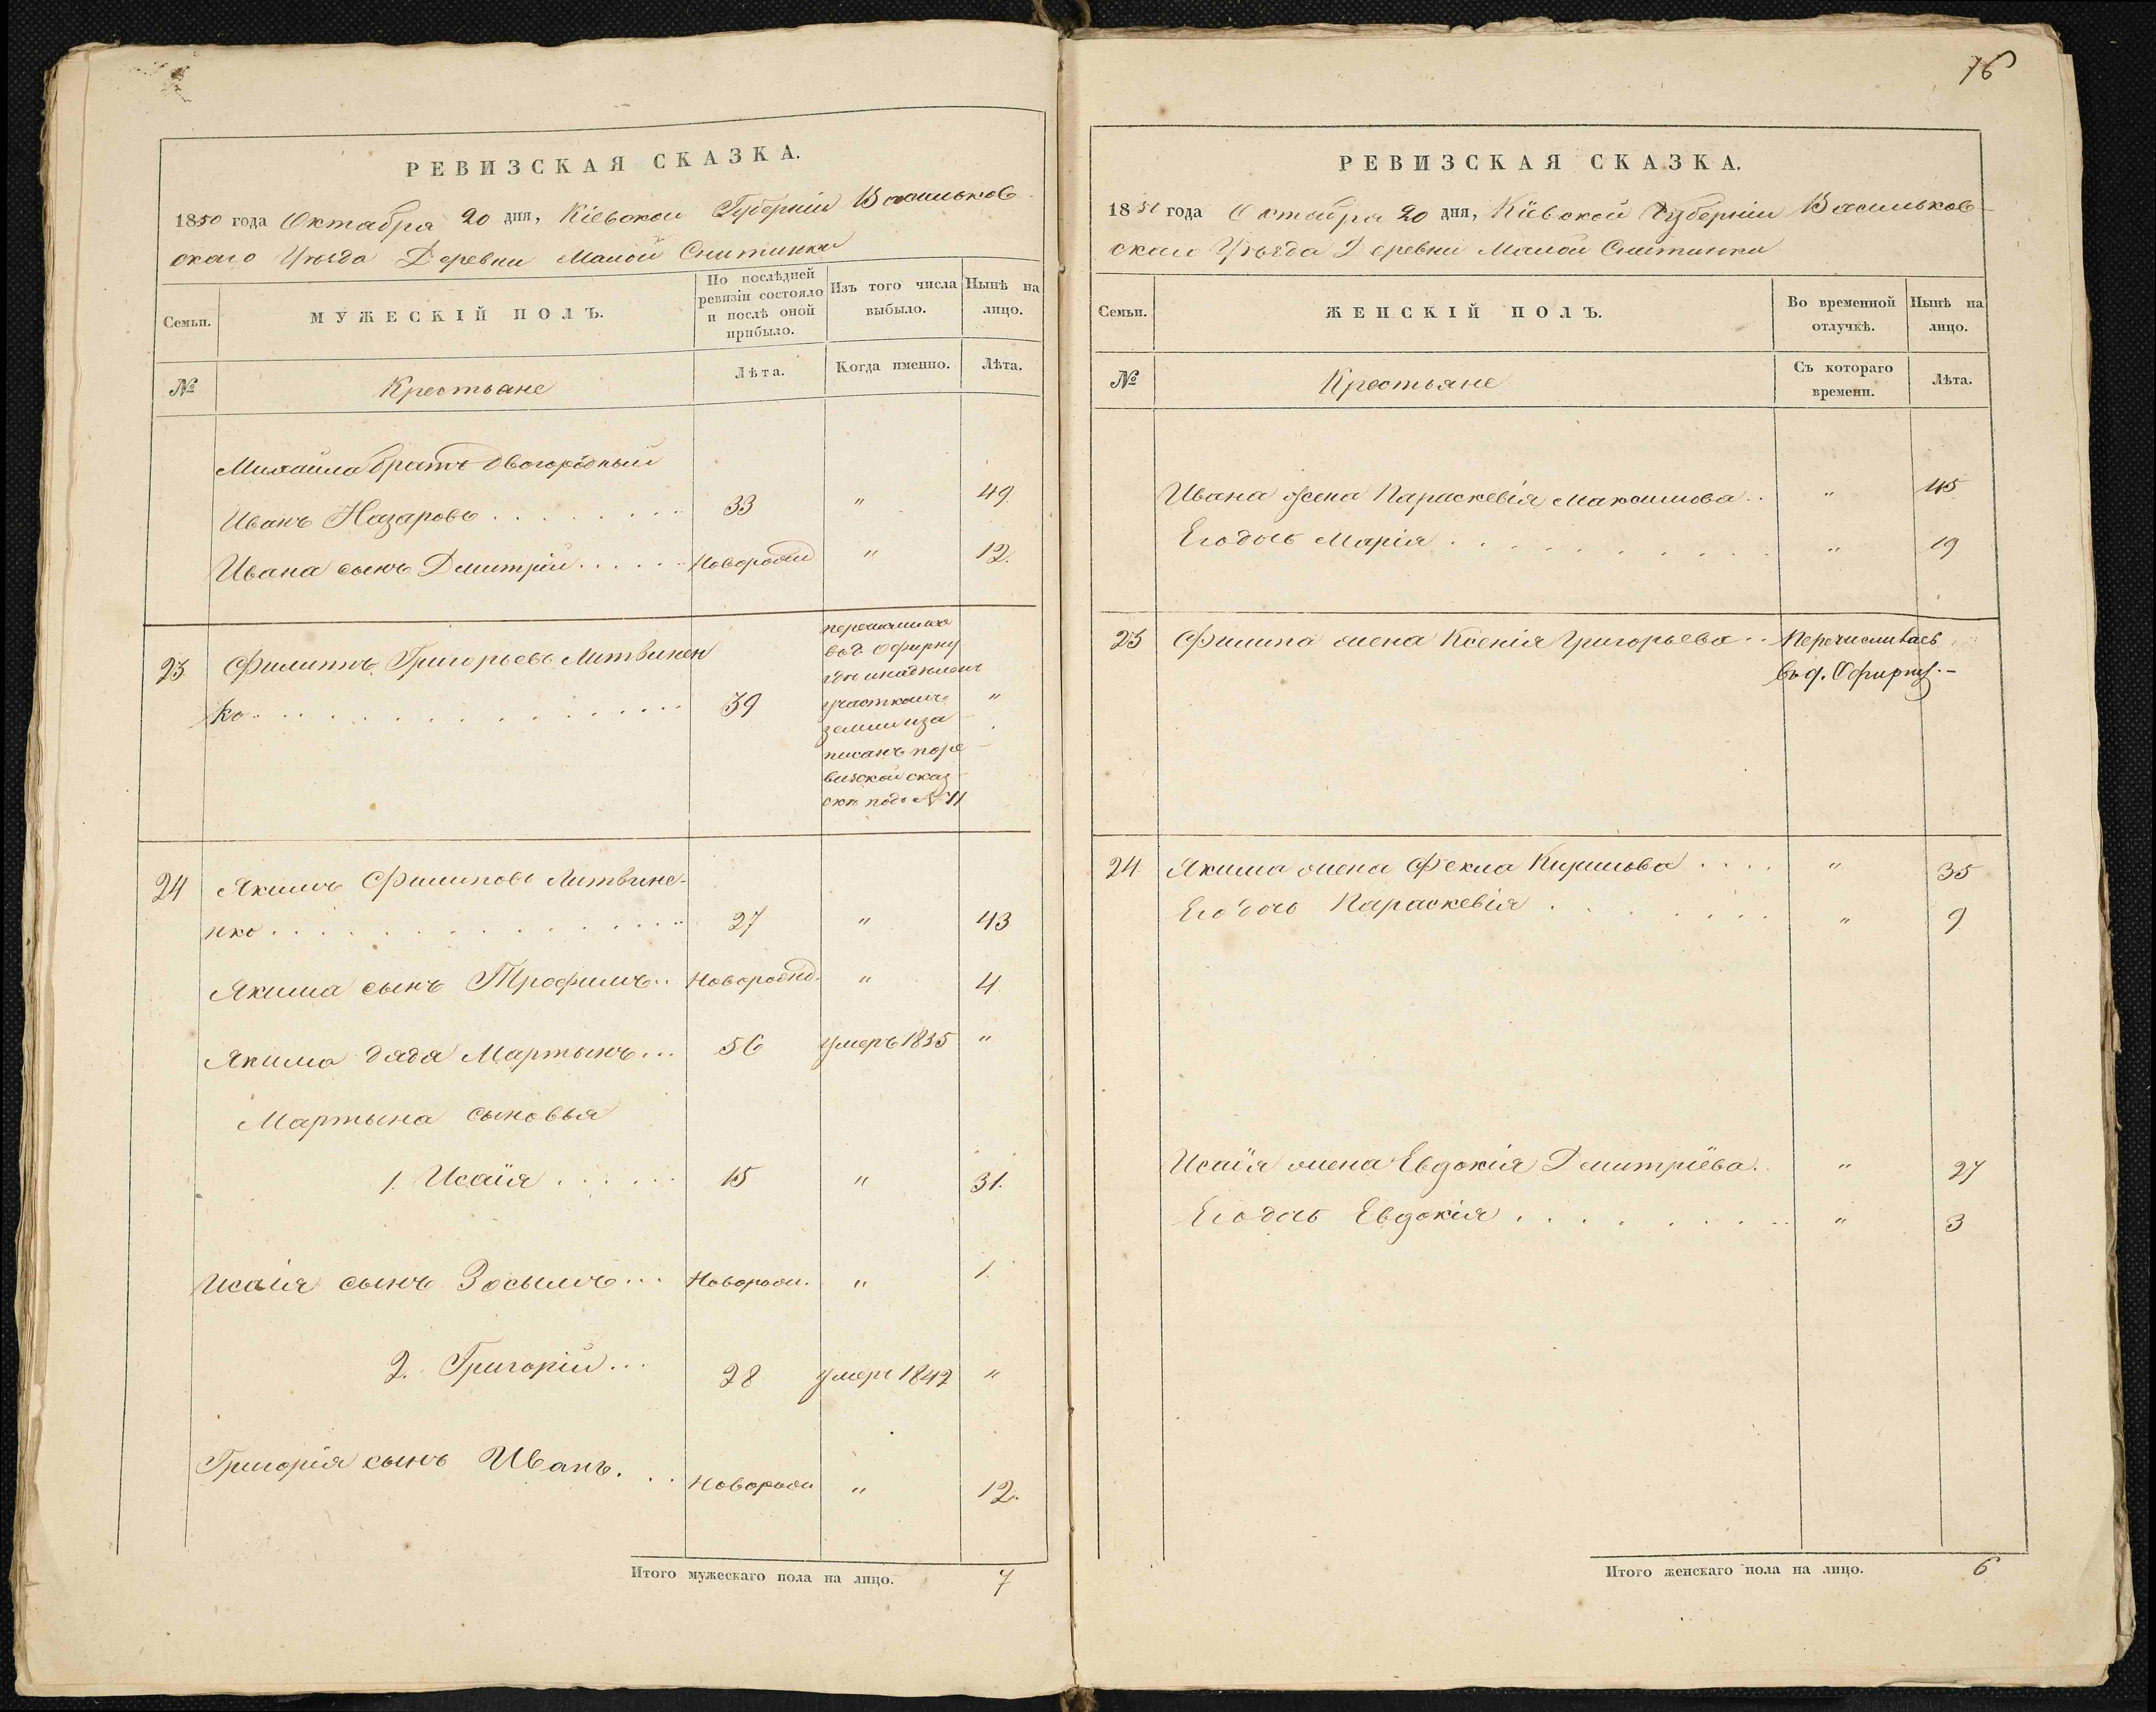 РЕВИЗСКАЯ СКАЗКА.
1850 года Октабра 20 дня, Кіевской Губерніи Васильков
скаго Уѣзда Деревни Малой Снитинки
Семьи.
МУЖЕСКІЙ ПОЛЪ.
По послѣдней ревизіи состояло и послѣ оной прибыло.
Изъ того числа выбыло.
Нынѣ на лицо.
№
Крестьане
Лѣта.
Когда именно.
Лѣта.
Михайла братъ двоюродный
Иванъ Назаровъ . . . . . . . . 33 " 49
Ивана сынъ Дмитрій . . . . . . Новорожд " 12.
23 Филиппъ Григорьевъ Литвинен
ко . . . . . . . . . . . . . . . 39 "
въ д Офирну
участкомъ
земли и за
писанъ по ре
визской сказ
скѣ подъ № 11
24 Якимъ Филиповъ Литвине-
нко . . . . . . . . . . . . . . 27 " 43
Якима сынъ Трофимъ .. Новорожд. " 4
Якима дядя Мартынъ ... 56 умеръ 1835 "
Мартына сыновья
1. Исаія . . . . . . 15 " 31.
Исаія сынъ Зосымъ ... Новорож. " 1.
2. Григорій ... 28 умеръ 1842 "
Григорія сынъ Иванъ. . . Новорож " 12.
Итого мужескаго пола на лицо. 7
76
РЕВИЗСКАЯ СКАЗКА.
1850 года Октабра 20 дня, Кіевской Губерніи Васильков-
скаго Уѣзда Деревни Малой Снитинки
Семьи.
ЖЕНСКІЙ ПОЛЪ.
Во временной отлучкѣ.
Нынѣ на лицо.
№
Крестьяне
Съ котораго времени.
Лѣта.
Ивана жена Параскевія Максимова .. " 45
Его дочь Марія . . . . . . . . . . " 19
23 Филипа жена Ксенія Григорьева .. Перечислилась
въ д. Офирну. -
24. Якима жена Фекла Кирилова . . . . " 35
Его дочь Параскевія . . . . . . . . " 9
Исаія жена Евдокія Дмитріева . . " 27
Его дочь Евдокія . . . . . . . . . " 3
Итого женскаго пола на лицо. 6